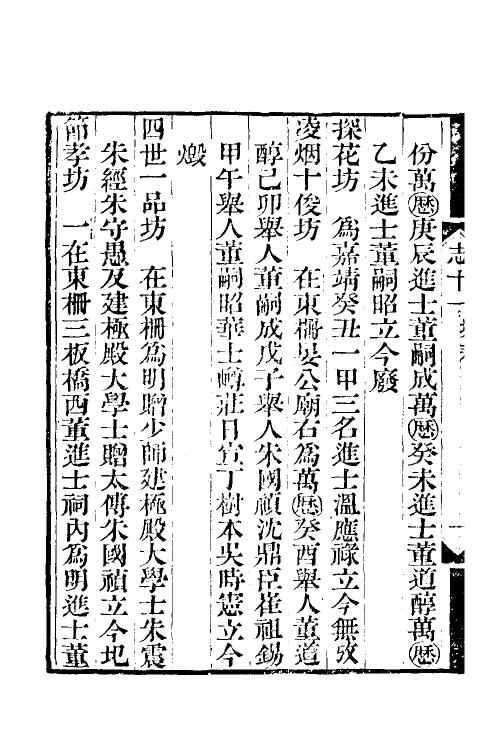 份萬曆庚辰進士董嗣成萬曆癸未進士董道醇萬曆
乙未進士董嗣昭立今廢
探花坊　爲嘉靖癸丑一甲三名進士溫應祿立今無攷
凌烟十俊坊　在東柵晏公廟右爲萬曆癸酉舉人董道
醇己卯舉人董嗣成戊子舉人朱國禎沈鼎臣崔祖錫
甲午舉人董嗣昭華士嶟莊日宣丁樹本吳時憲立今
燬
四世一品坊　在東柵爲明贈少師建極殿大學士朱震
朱經朱守愚及建極殿大學士贈太傅朱國禎立今圮
節孝坊　一在東柵三板橋西董進士祠內爲明進士董
志十一